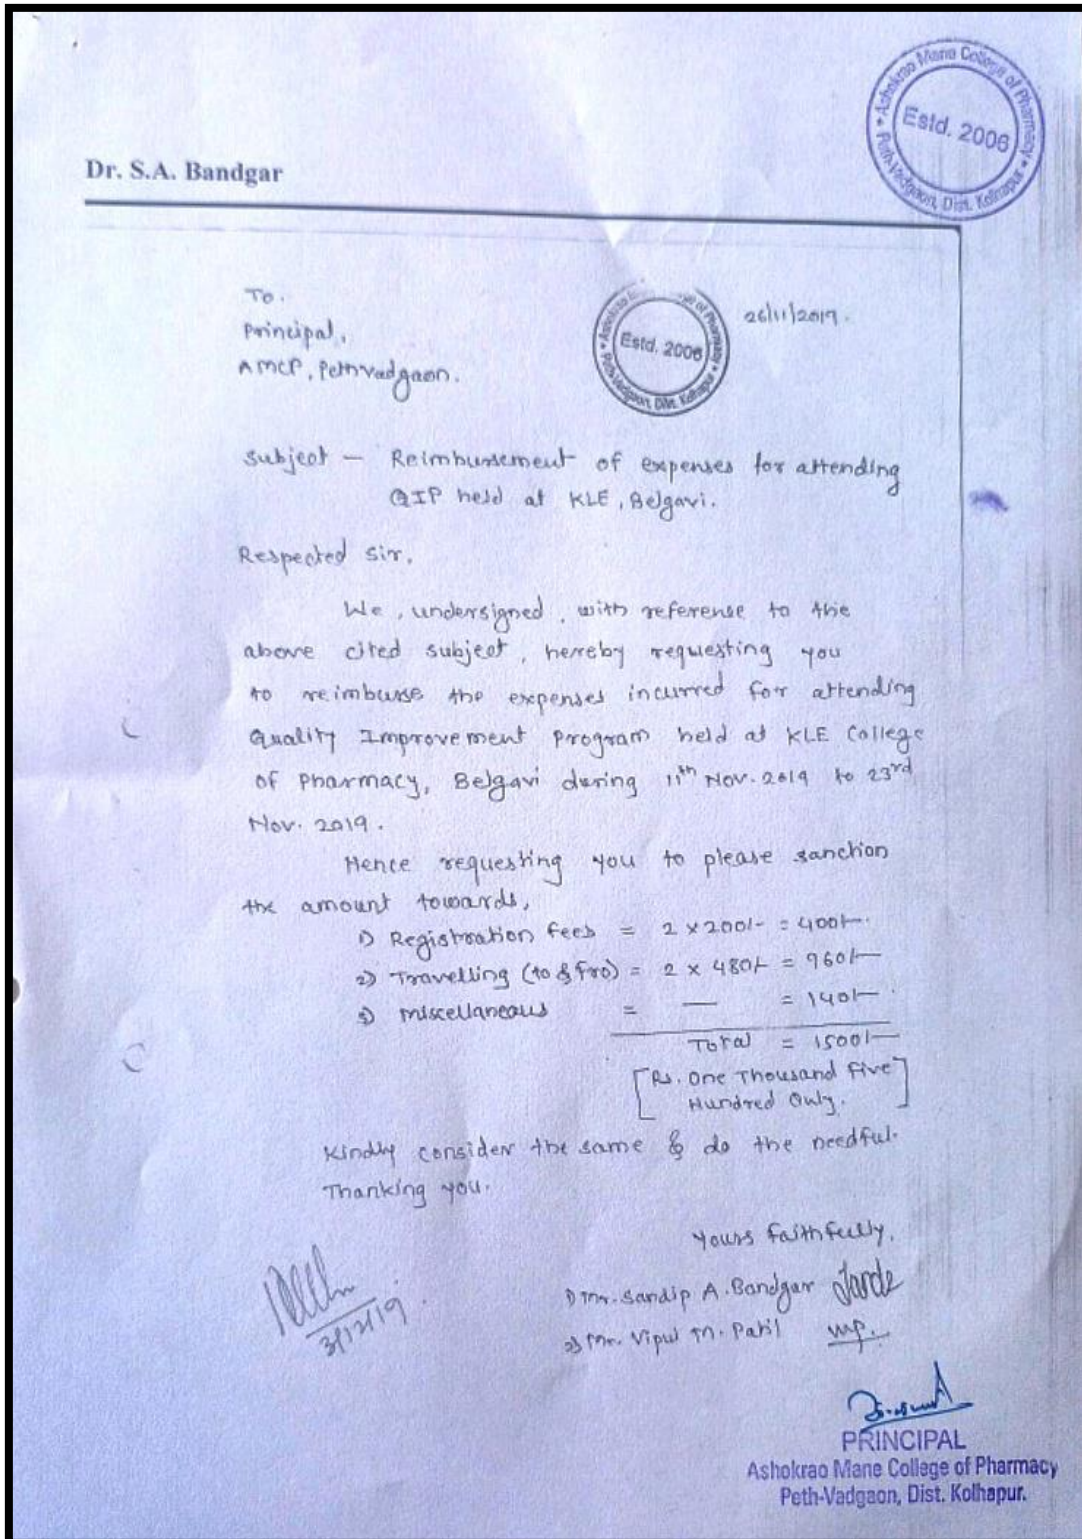 Ashokrao Mane College of Pharmacy
Estd. 2006
Peth-Vadgaon, Dist. Kolhapur
Dr. S.A. Bandgar
To.
Principal,
AMCP, Pethvadgaon.
Estd. 2006
Peth-Vadgaon, Dist. Kolhapur
26/11/2019.
Subject - Reimbursement of expenses for attending
QIP held at KLE, Belgavi.
Respected Sir,
We, undersigned, with reference to the
above cited subject, hereby requesting you
to reimburse the expenses incurred for attending
Quality Improvement Program held at KLE College
of Pharmacy, Belgavi during 11th Nov. 2019 to 23rd
Nov. 2019.
Hence requesting you to please sanction
the amount towards,
1) Registration fees = 2 x 200/- = 400/-.
2) Travelling (to & fro) = 2 x 480/- = 960/-
3) Miscellaneous = — = 140/-
Total = 1500/-
[Rs. One Thousand Five
Hundred Only.]
Kindly consider the same & do the needful.
Thanking you.
Yours faithfully,
1) Mr. Sandip A. Bandgar
2) Mr. Vipul M. Patil
3/12/19.
PRINCIPAL
Ashokrao Mane College of Pharmacy
Peth-Vadgaon, Dist. Kolhapur.